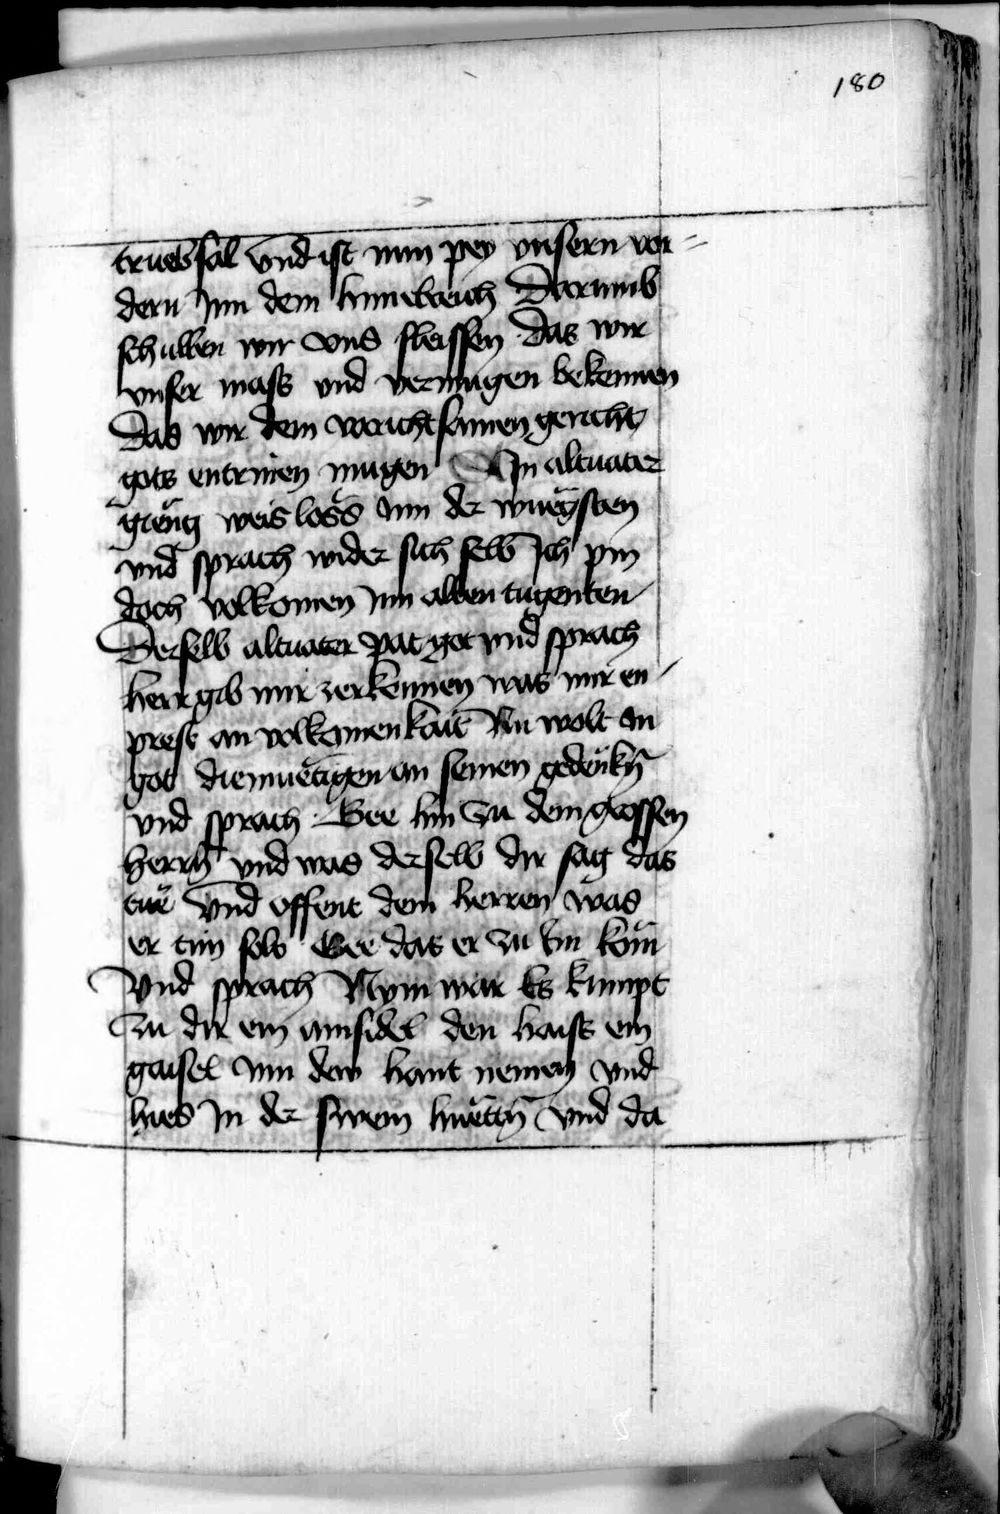 180
truebsal vnd ist nun pey vnsern vor=
dern inn dem himelreich Darumb
schullen wir vns fleissen das wir
vnser mass vnd vermugen bekennen
Das wir dem voricht samen gericht
gots entrinen mugen Ain altuater
gieng weis loss inn der wuesten
vnd sprach wider sich selb Ich pin
doch volkomen inn allen tugenten
Derselb altuater pat got vnd sprach
herr gib mir zerkennen was mir en/
prest an volkomenkait Nu wolt in
got diemuetigen an seinen gedenkn̄
vnd sprach Gee hin zu dem grossen
herrn̄ vnd was derselb dir sag das
tue vnd offent dem herren was
er tun solt Gee das er zu im kom
Vnd sprach Nym war Es kumpt
zu dir ein ainsidel den haiss ein
gaisel inn dew hant nemen vnd
hies in der swein huettn̄ vnd da